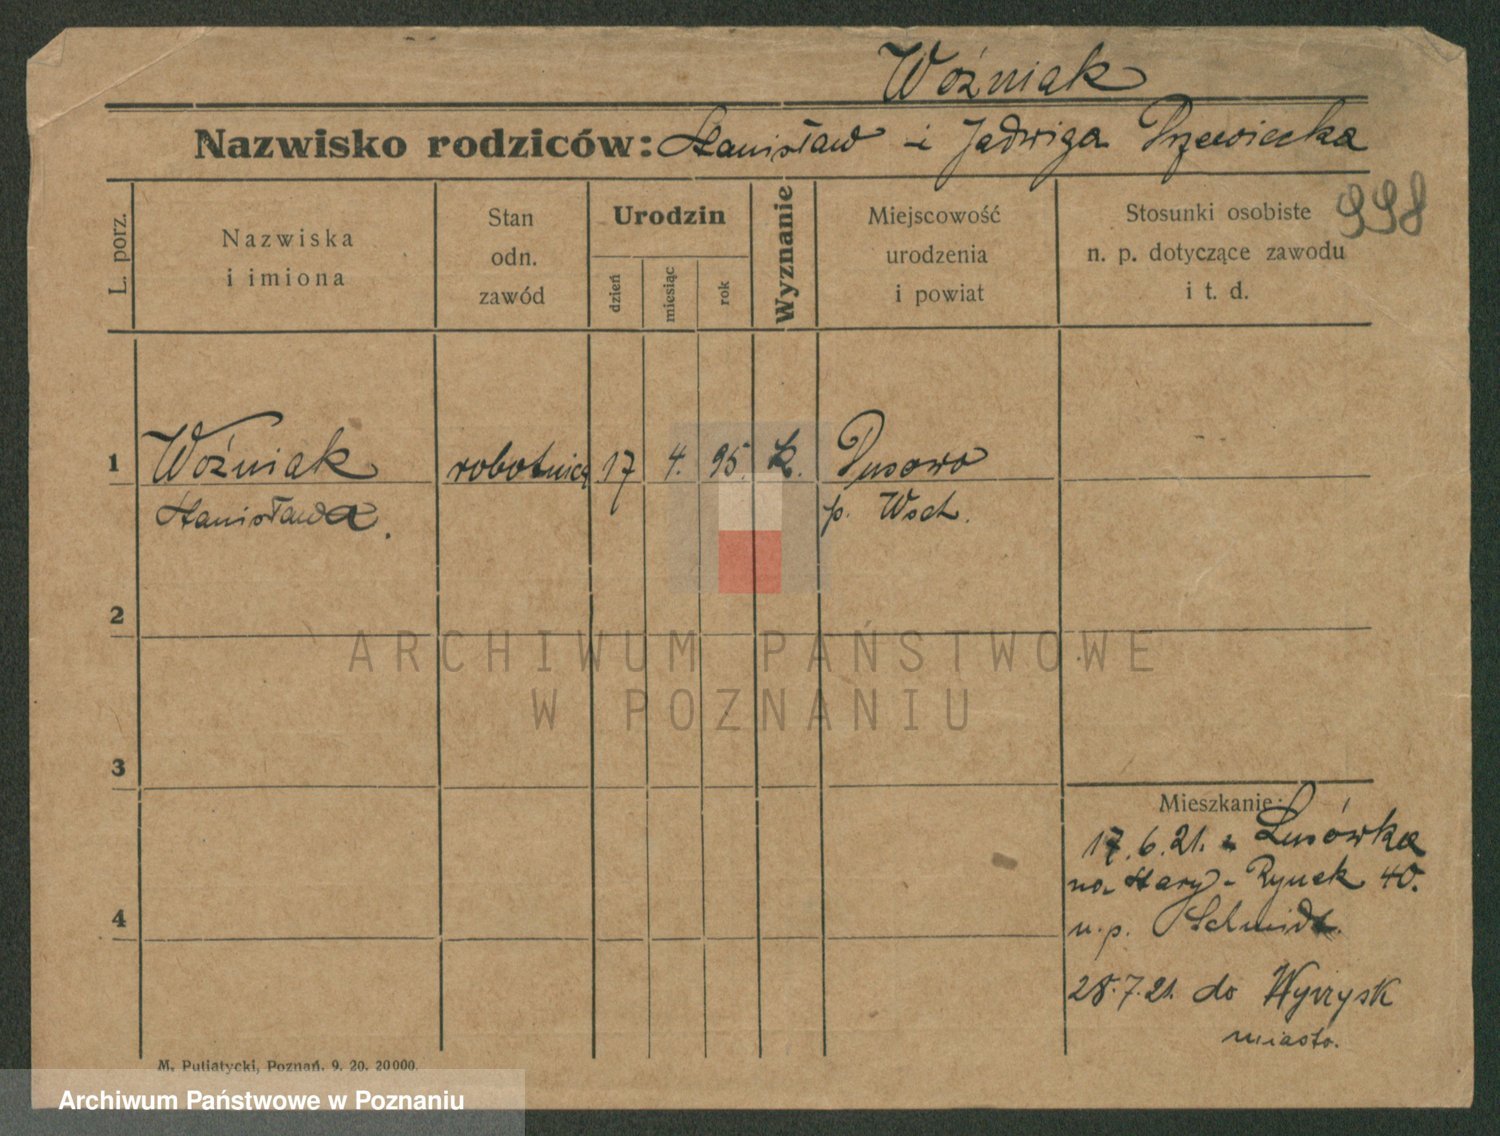 Woźniak
Nazwisko rodziców: Stanisław i Jadwiga
998
L. porz.
Nazwiska
i imiona
Stan
odn.
zawód
Urodzin
dzień
miesiąc
rok
Wyznanie
Miejscowość
urodzenia
i powiat
Stosunki osobiste
n. p. dotyczące zawodu
i t. d.
1
Woźniak
Stanisława.
robotnica
17
4.
95.
k.
Dusowo
p. Wsch.
2
ARCHIWUM PAŃSTWOWE
W POZNANIU
3
Mieszkanie:
17.6.21. z Lusówka
na Stary-Rynek 40.
u. p. Schmidt.
28.7.21. do Wyrzysk
miasto.
4
M. Putiatycki, Poznań. 9. 20. 20000.
Archiwum Państwowe w Poznaniu